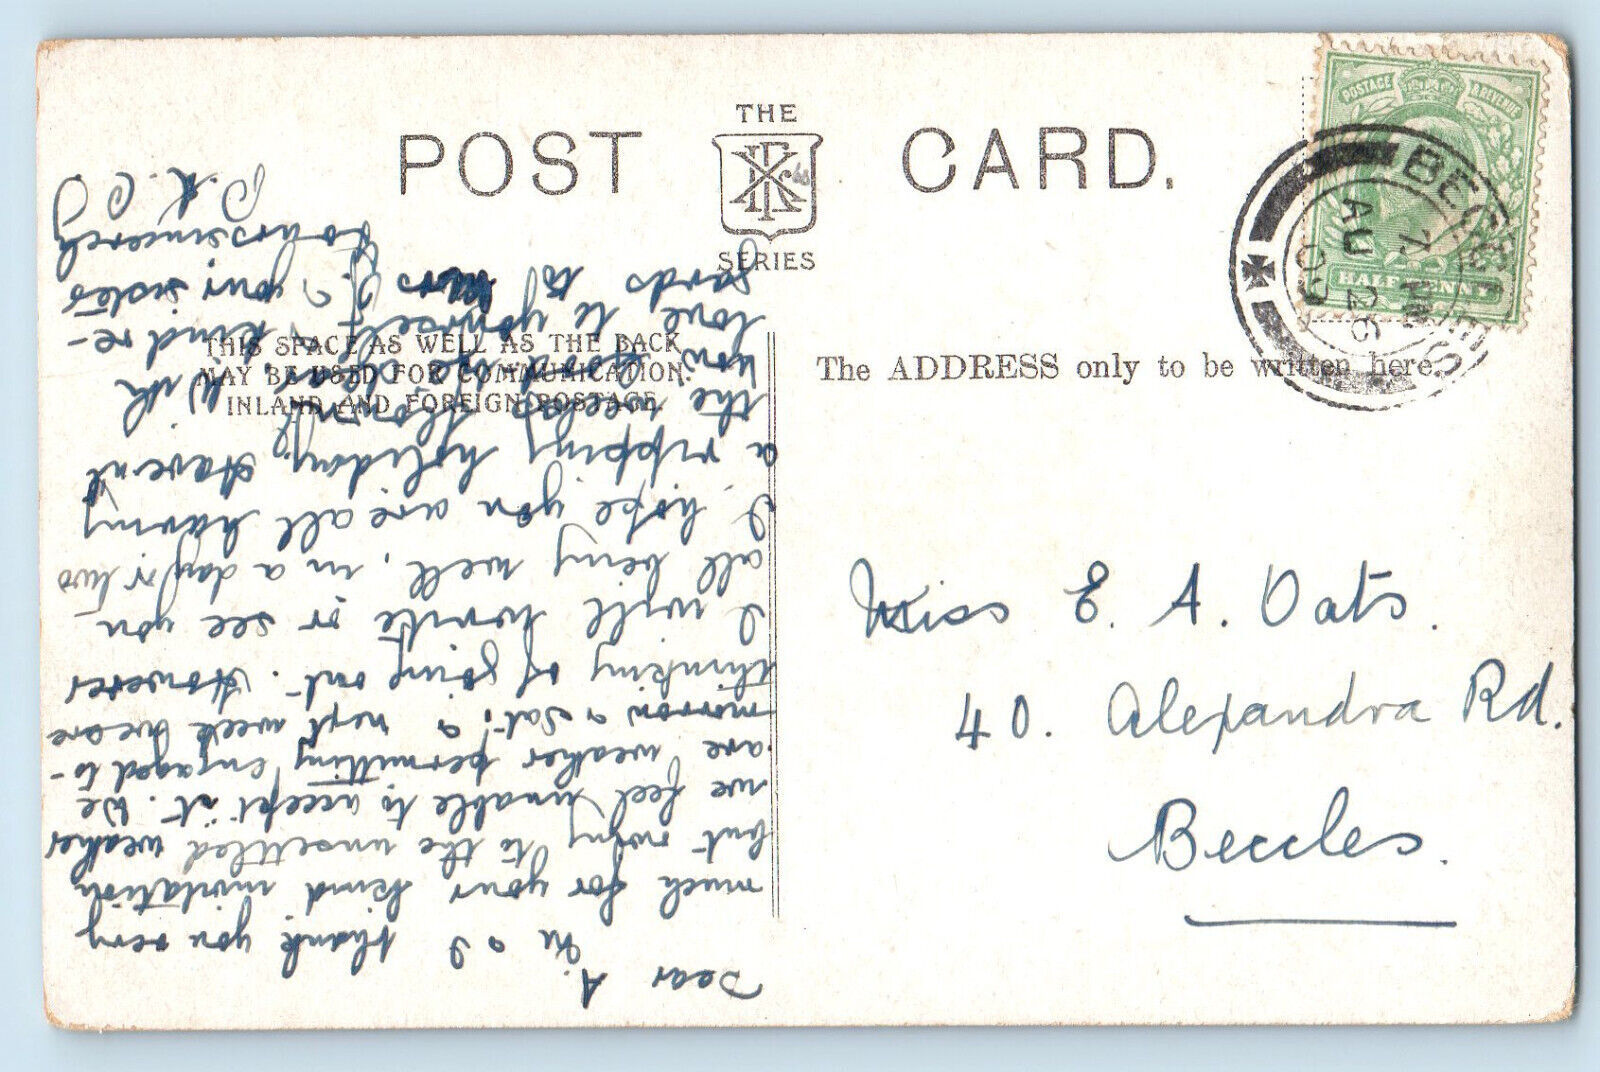 POST CARD.
THE
SERIES
POSTAGE & REVENUE
HALFPENNY
BECCLES
AU 26
09
THIS SPACE AS WELL AS THE BACK
MAY BE USED FOR COMMUNICATION.
INLAND AND FOREIGN POSTAGE.
The ADDRESS only to be written here.
Miss E. A. Oats.
40. Alexandra Rd.
Beccles.
Dear A.
I thank you very
much for your kind invitation
but owing to the unsettled weather
we feel unable to accept it. We
are weather permitting engaged to-
morrow & Sat. & next week we are
thinking of going out. However
I will write or see you
all being well, in a day or two
I hope you are all having
a ripping holiday, Haven't
the weeks flown
With
love to yourself & kind re-
gards to your sister
Yours sincerely